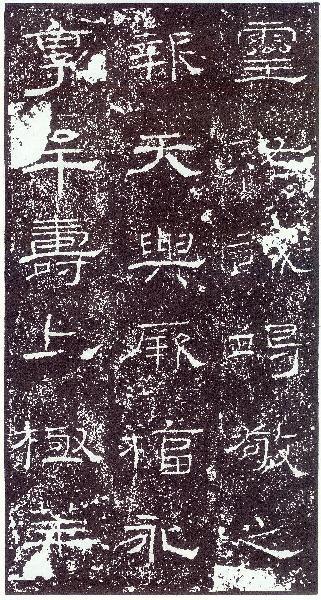 靈祐誠竭敬之
報天與厥福永
享牟壽上極華